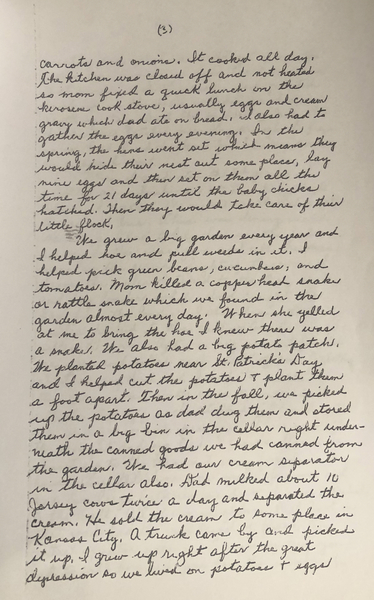 (3)
carrots and onions. It cooked all day.
The kitchen was closed off and not heated
so mom fixed a quick lunch on the
kerosene cook stove, usually eggs and cream
gravy which dad ate on bread. I also had to
gather the eggs every evening. In the
spring, the hens went set which means they
would hide their nest out some place, lay
nine eggs and then set on them all the
time for 21 days until the baby chicks
hatched. Then they would take care of their
little flock.
We grew a big garden every year and
I helped hoe and pull weeds in it. I
helped pick green beans, cucumbers, and
tomatoes. Mom killed a copper head snake
or rattle snake which we found in the
garden almost every day. When she yelled
at me to bring the hoe I knew there was
a snake. We also had a big potato patch.
We planted potatoes near St. Patrick's Day
and I helped cut the potatoes & plant them
a foot apart. Then in the fall, we picked
up the potatoes as dad dug them and stored
them in a big bin in the cellar right under-
neath the canned goods we had canned from
the garden. We had our cream separator
in the cellar also. Dad milked about 10
Jersey cows twice a day and separated the
cream. He sold the cream to some place in
Kansas City. A truck came by and picked
it up. I grew up right after the great
depression so we lived on potatoes & eggs